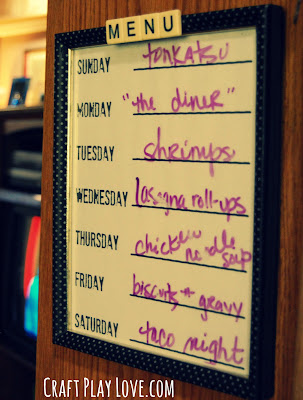 MENU
SUNDAY tonkatsu
MONDAY "the diner"
TUESDAY shrimps
WEDNESDAY lasagna roll-ups
THURSDAY chicken noodle
soup
FRIDAY biscuits + gravy
SATURDAY taco night
CRAFT PLAY LOVE.COM